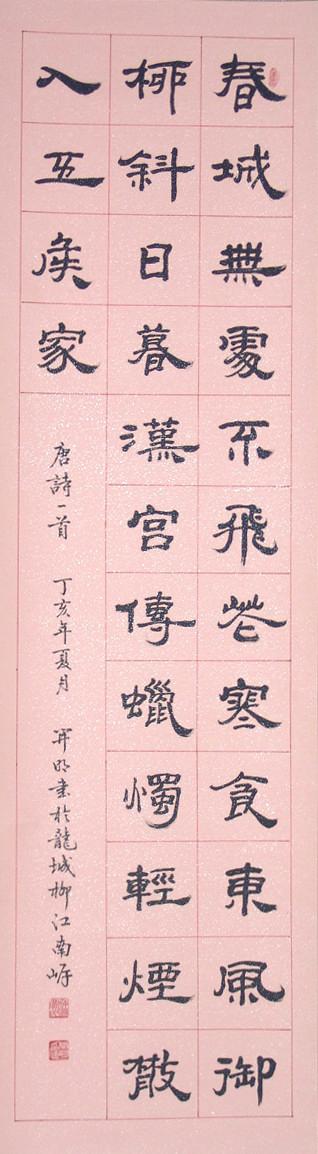 春城無處不飛花寒食東風御
柳斜日暮漢宮傳蠟燭輕煙散
入五侯家
唐詩一首 丁亥年夏月 開明書於龍城柳江南岸